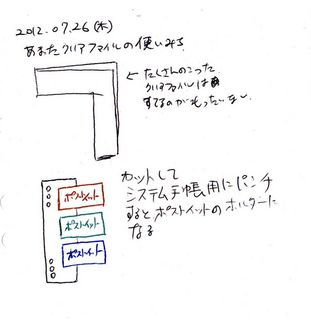 2012.07.26(木)
あまたクリアファイルの使いみち
←たくさんのこった
クリアファイルは
すてるのがもったいない
カットして
システム手帳用にパンチ
するとポストイットのホルダーに
なる
ポストイット
ポストイット
ポストイット